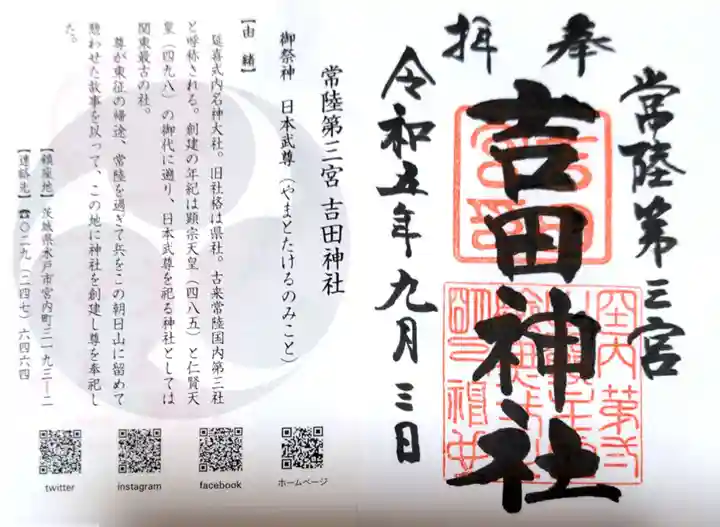 奉拝
常陸第三宮
吉田神社
令和五年九月三日
常陸第三宮 吉田神社
御祭神 日本武尊(やまとたけるのみこと)
【由緒】
延喜式内名神大社。旧社格は県社。古来常陸国内第三社
と呼称される。創建の年紀は顕宗天皇(四八五)と仁賢天
皇(四九八)の御代に遡り、日本武尊を祀る神社としては
関東最古の社。
尊が東征の帰途、常陸を過ぎて兵をこの朝日山に留めて
憩わせた故事を以って、この地に神社を創建し尊を奉祀し
た。
【鎮座地】茨城県水戸市宮内町三一九三―二
【連絡先】☎〇二九(二四七)六四六四
twitter
instagram
facebook
ホームページ